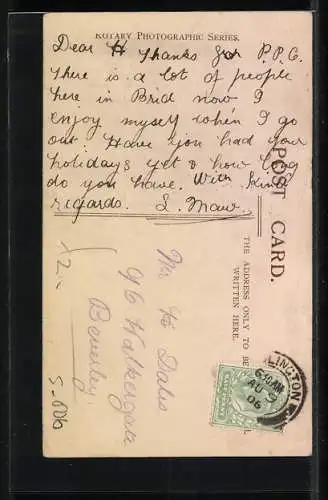 ROTARY PHOTOGRAPHIC SERIES.
Dear H Thanks for P.P.C.
There is a lot of people
here in Brid now I
enjoy myself when I go
out. Have you had your
holidays yet & how long
do you have. With kind
regards. L. Maw.
POST CARD.
THE ADDRESS ONLY TO BE
WRITTEN HERE.
Mr H Dales
96 Walkergate
Beverley
LINGTON
6.30 AM
AU 9
06